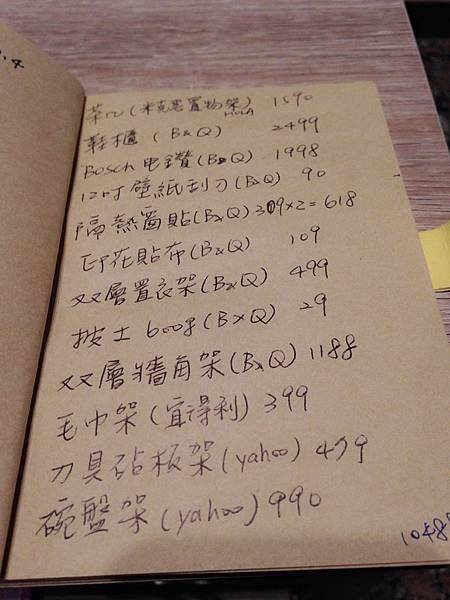 .4
茶几(米克思置物架) 1590
MOLA
鞋櫃(B&Q) 2499
Bosch电鑽(B&Q) 1998
12吋壁紙刮刀(B&Q) 90
隔熱窗貼(B&Q)309×2=618
印花貼布(B&Q) 109
双層置衣架(B&Q) 499
批土600g(B&Q) 29
双層牆角架(B&Q) 1188
毛巾架(宜得利) 399
刀具砧板架(yahoo) 479
碗盤架(yahoo) 990
1048